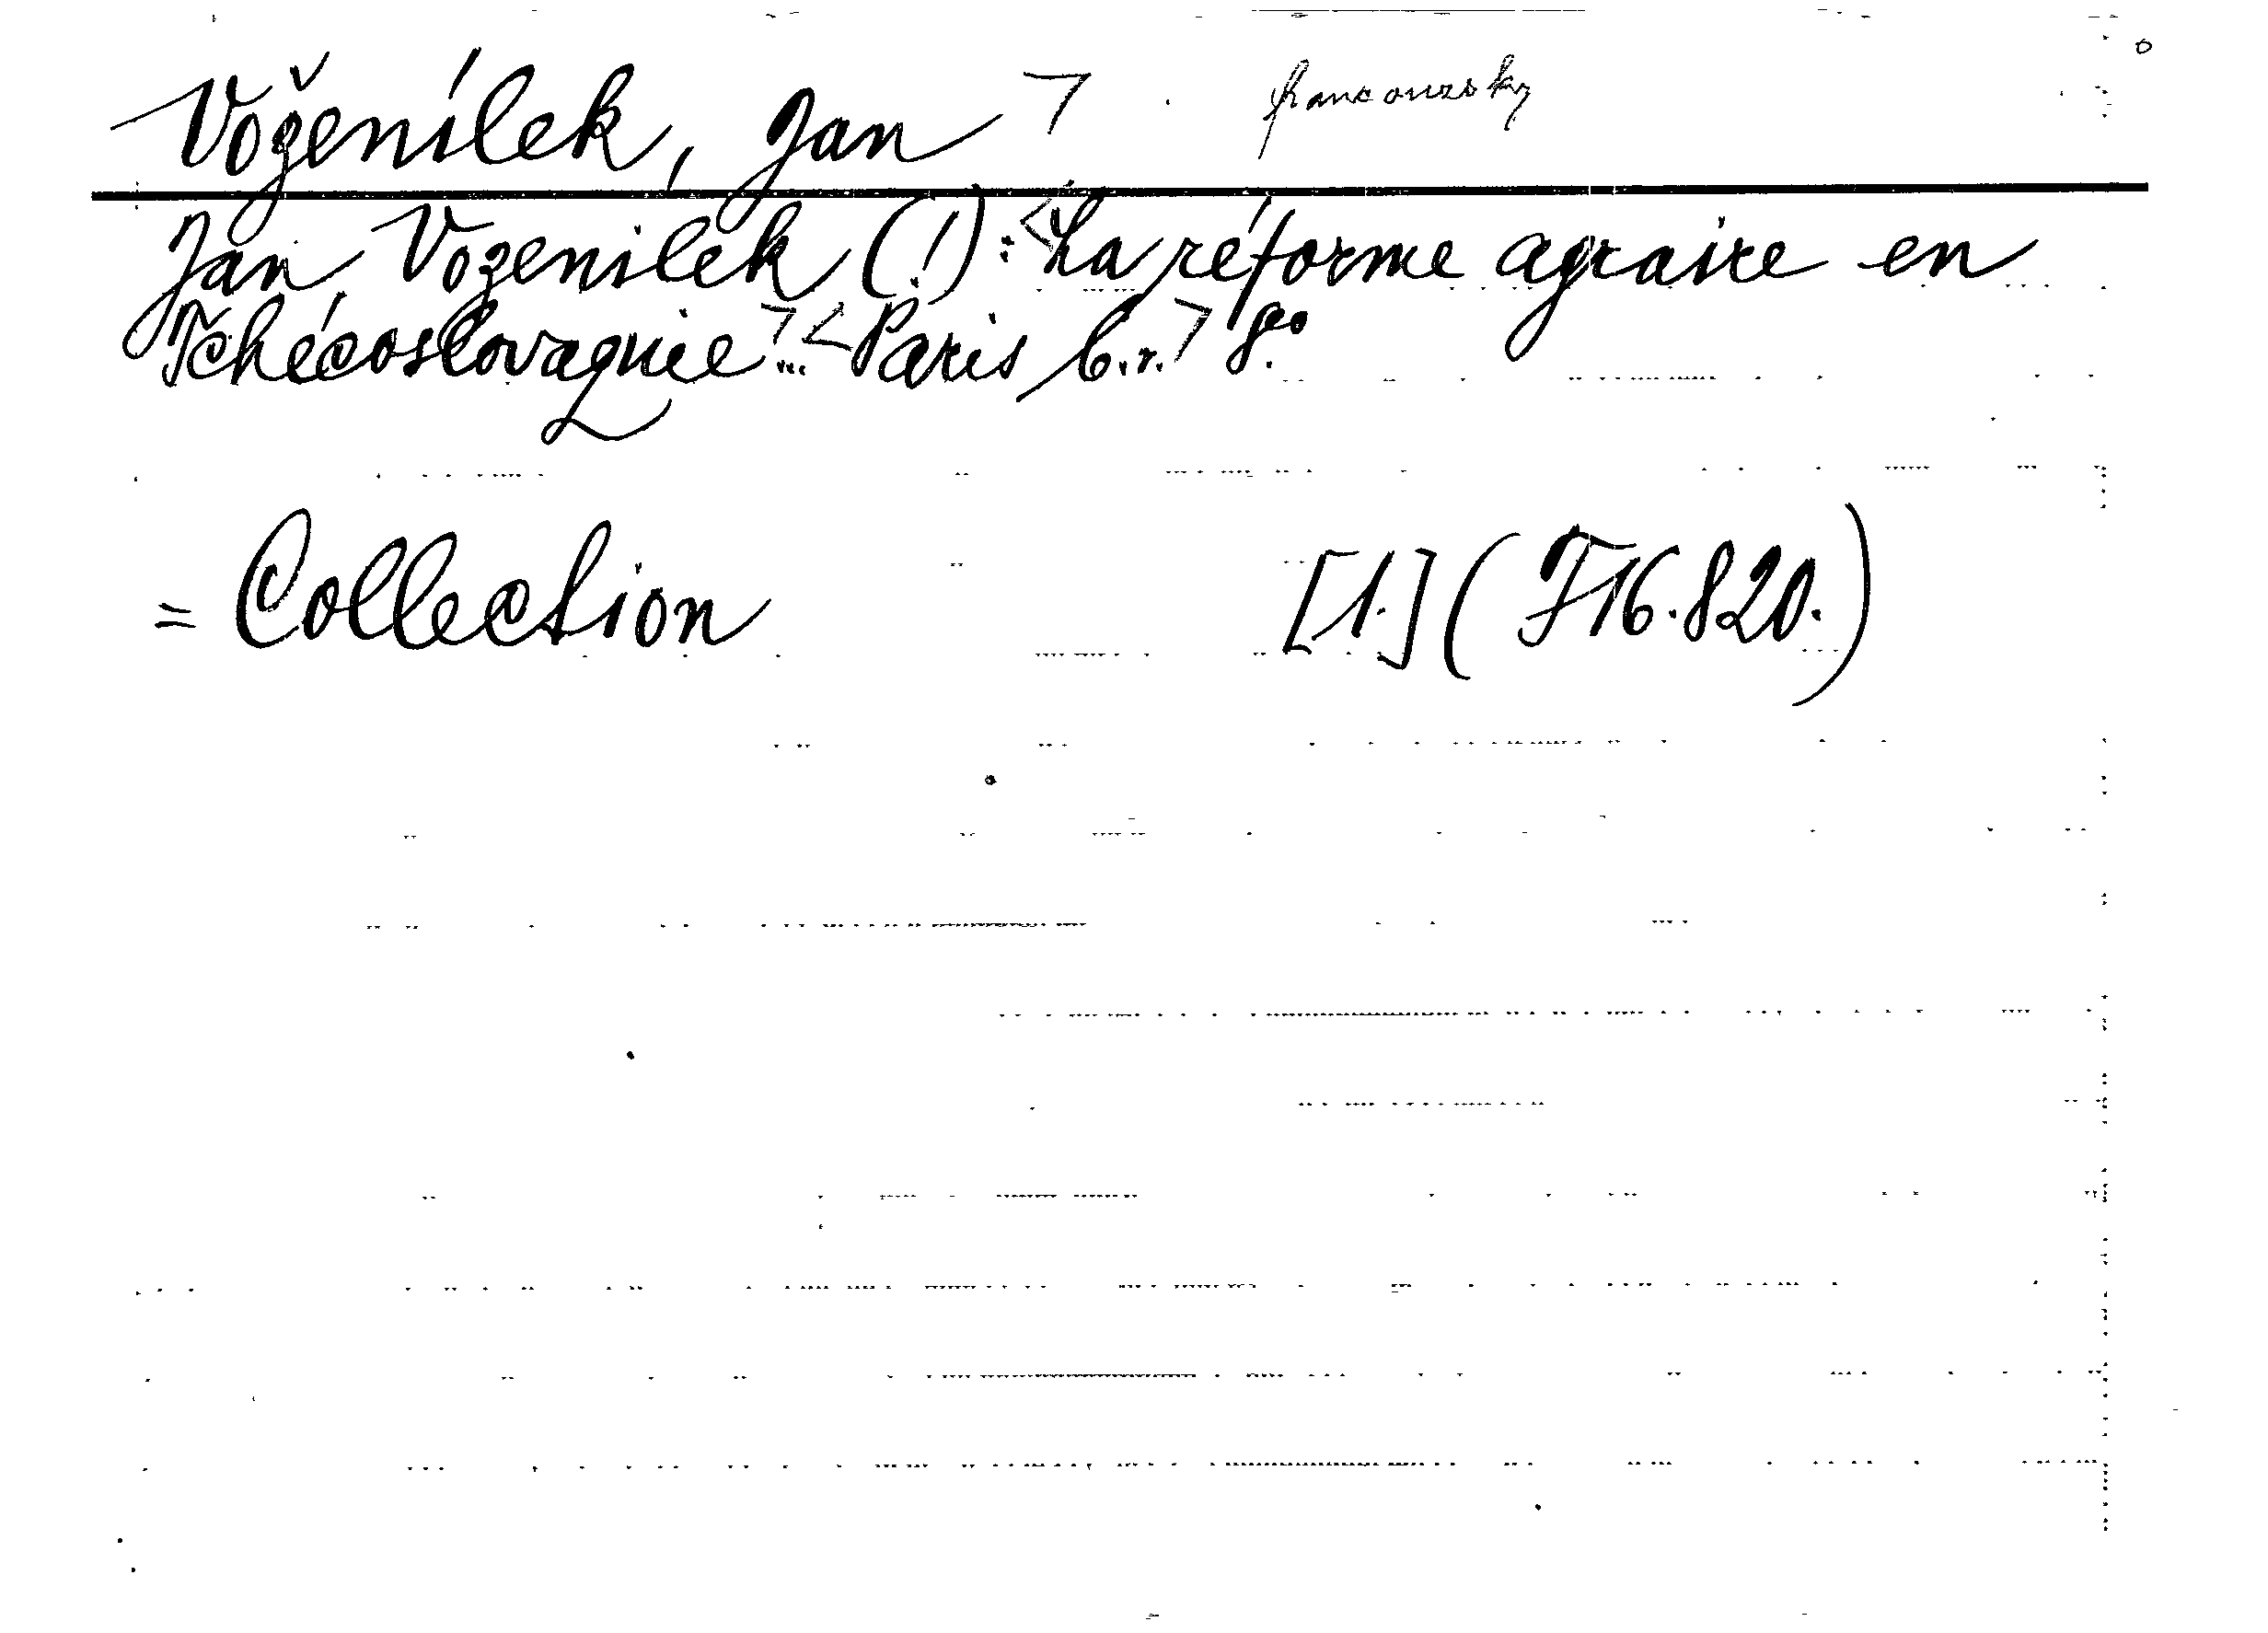 Voženílek, Jan > francouzsky
Jan Vozenilek (!): <La réforme agraire en
Tchécoslovaquie>... <Paris b.r.> 8°
= Collection [1.] (F 16.820.)